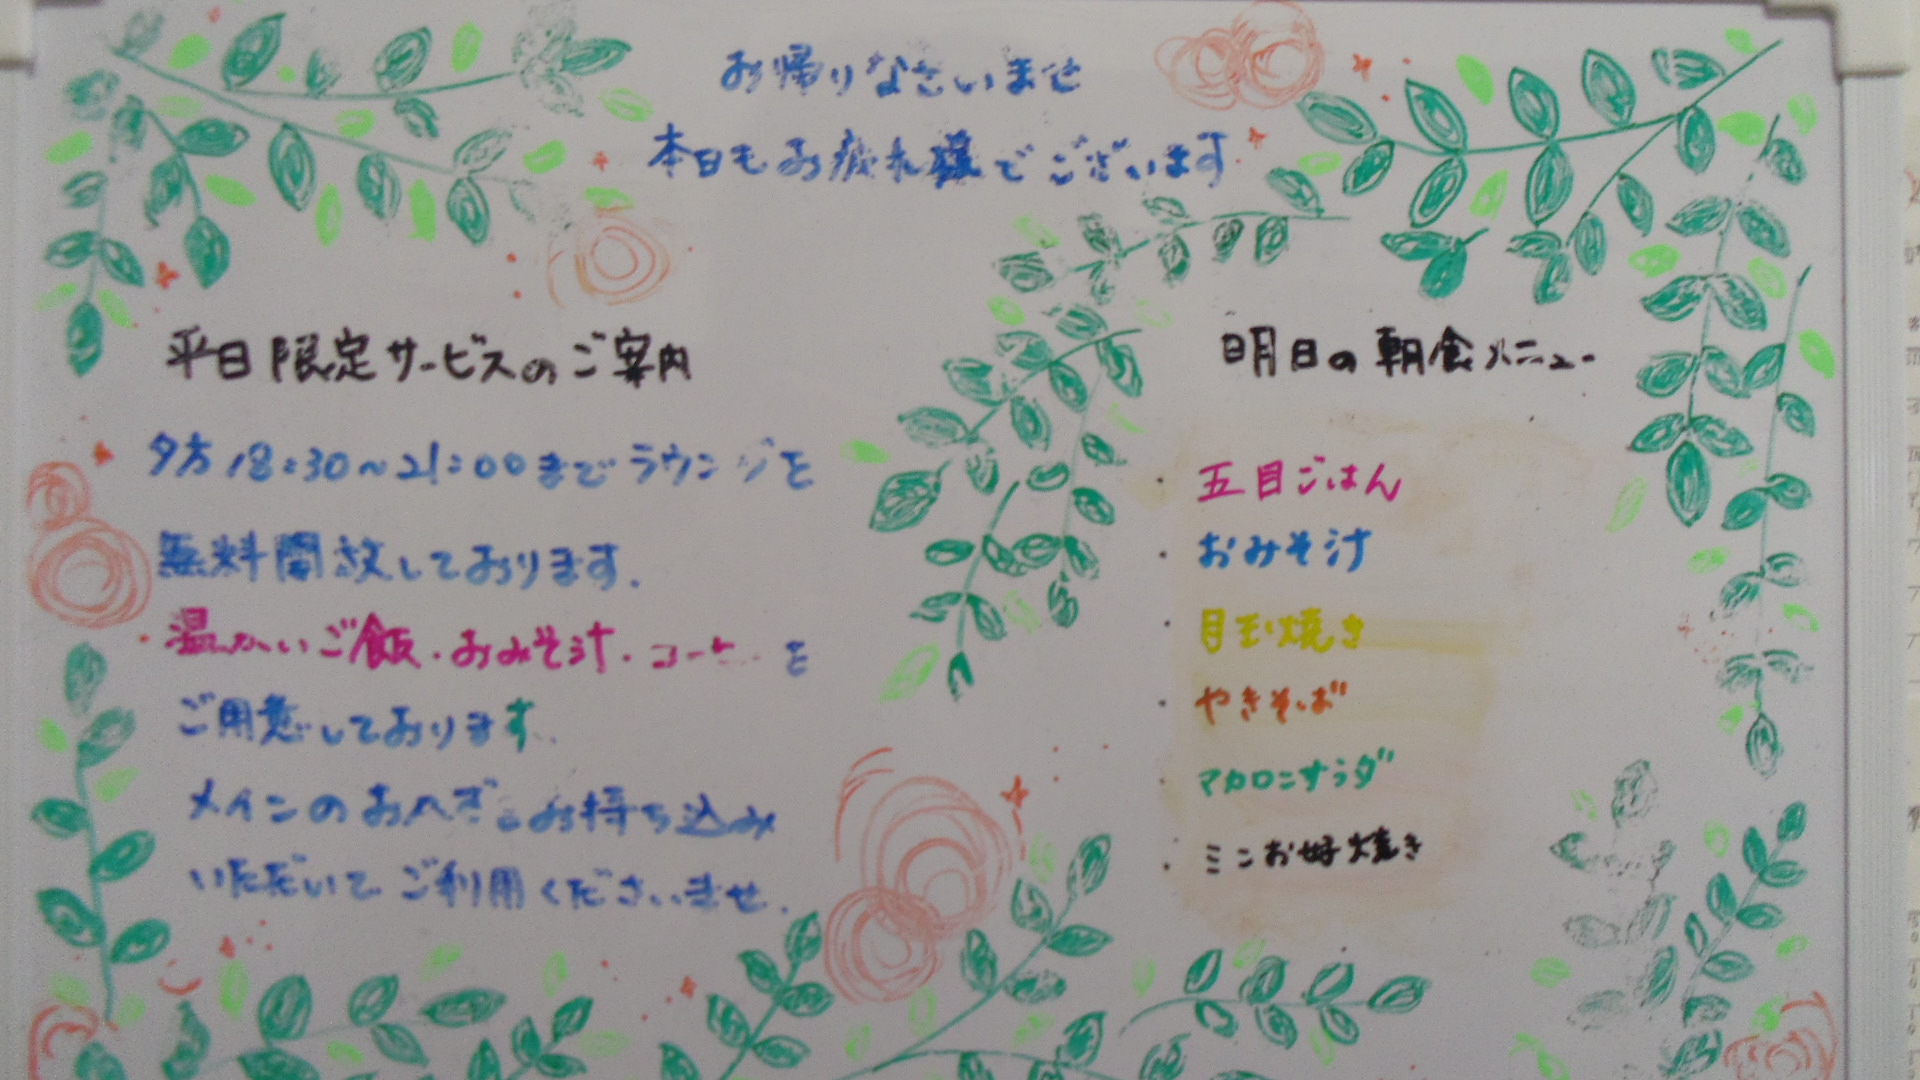 お帰りなさいませ
本日もお疲れ様でございます。
平日限定サービスのご案内
夕方18:30~21:00までラウンジを
無料開放しております。
温かいご飯・おみそ汁・コーヒーを
ご用意しております。
メインのおかずをお持ち込み
いただいてご利用くださいませ。
明日の朝食メニュー
・五目ごはん
・おみそ汁
・目玉焼き
・やきそば
・マカロニサラダ
・ミニお好焼き